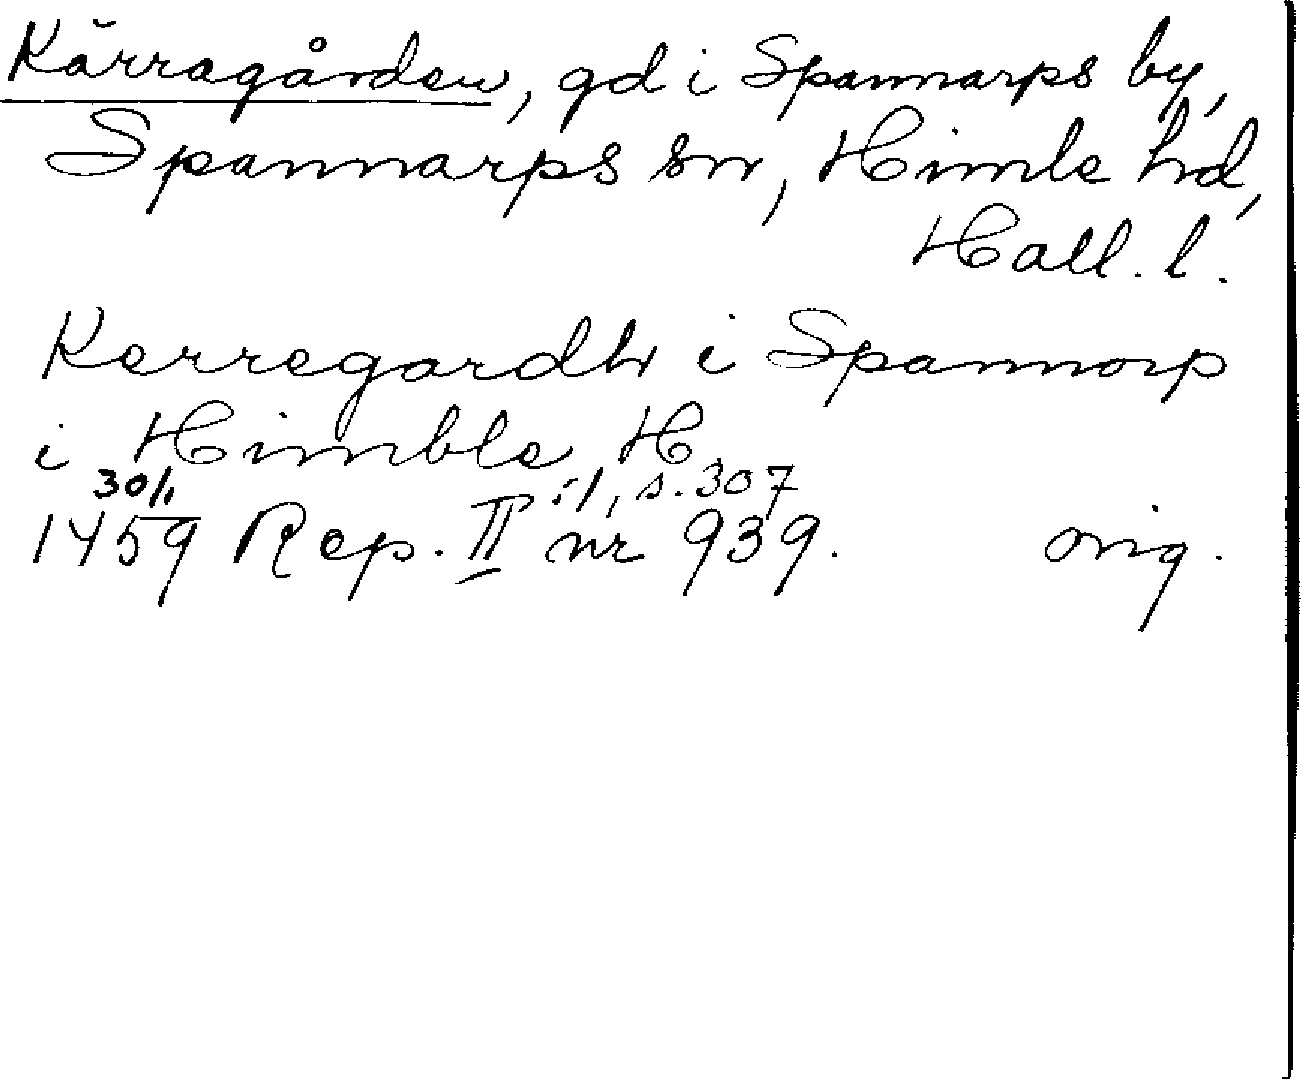 Kärragården, gd i Spannarps by,
Spannarps sn, Himle hd,
Hall. l.
Kerregardh i Spannorp
i Himble H.
30/1 :1, s. 307
1459 Rep. II nr 939. orig.